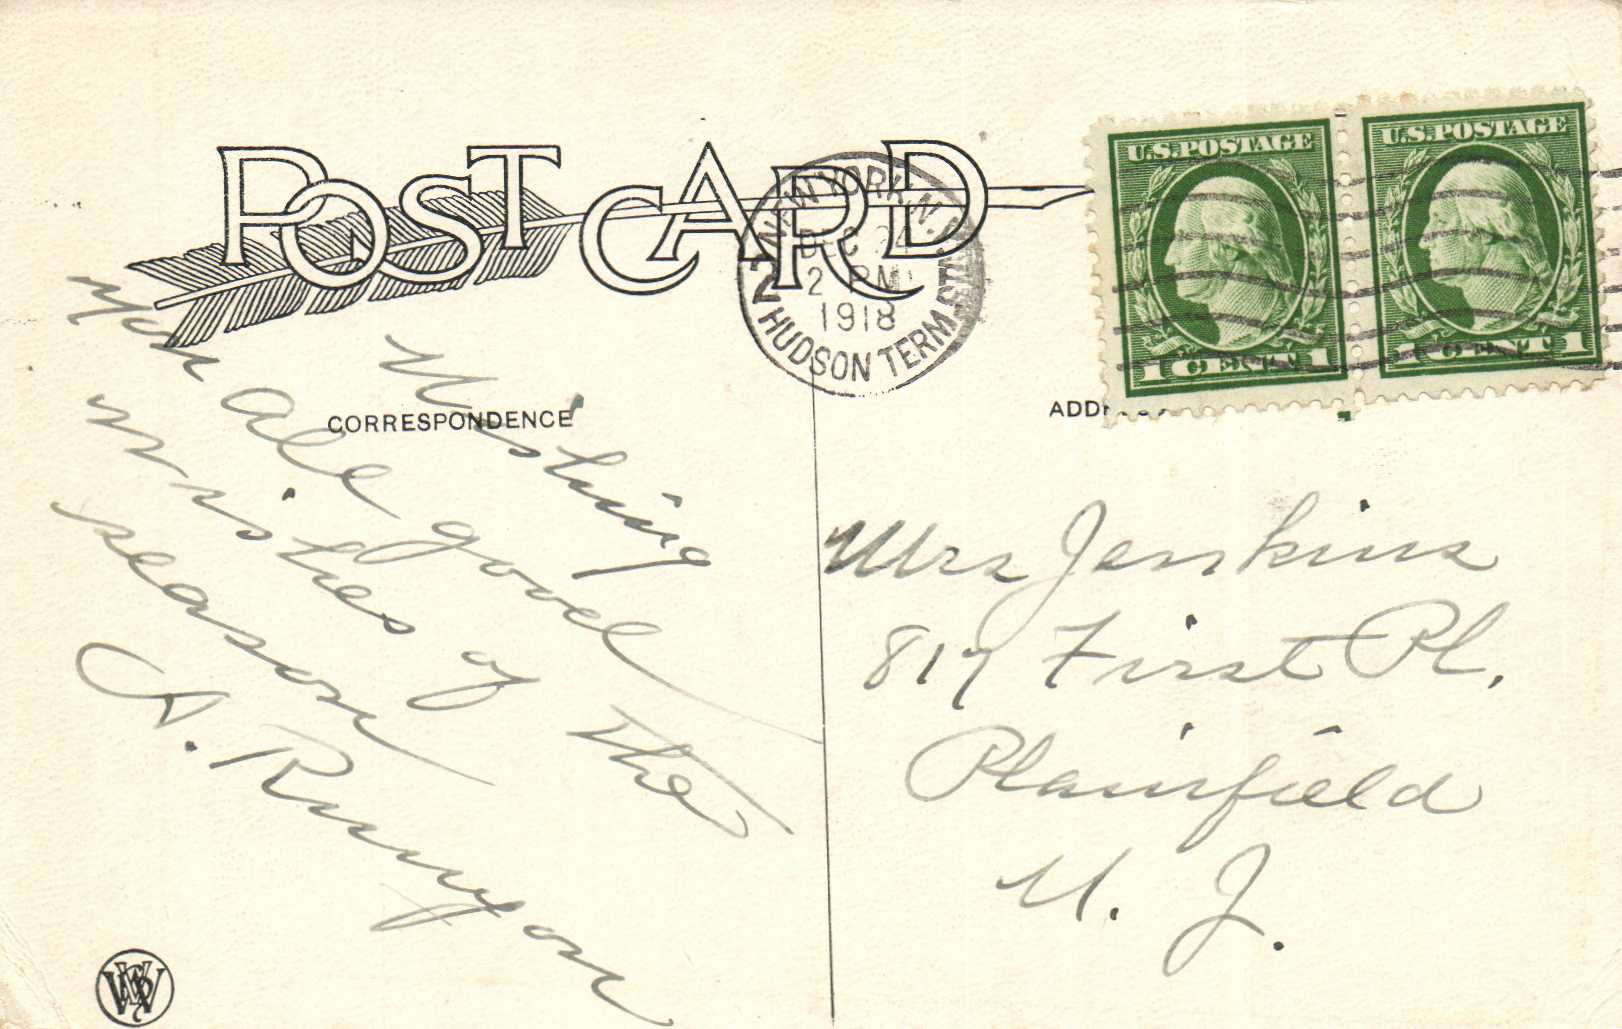 POST CARD
NEW YORK, N.Y.
DEC 24
2 PM
1918
HUDSON TERM. STA.
U.S. POSTAGE
1 CENT 1
U.S. POSTAGE
1 CENT 1
CORRESPONDENCE
Wishing
you all good
wishes of the
season
A. Runyon
Mrs Jenkins
817 First Pl.
Plainfield
N. J.